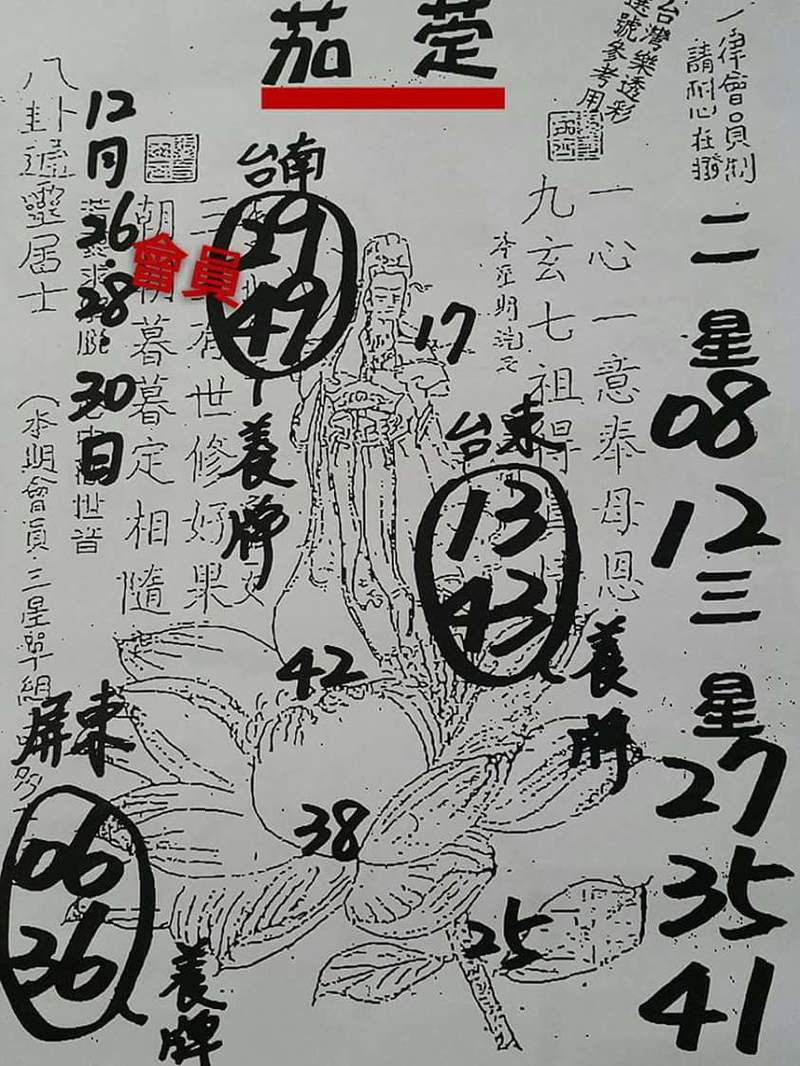 茄萣
台灣樂透彩
選號參考用
一律會員制
請耐心在撥
二星
08
12
三星
27
35
41
一心一意奉母恩
九玄七祖得
台東
13
43
養牌
17
台南
29
49
養牌
會員
三
有世修好果
朝朝暮暮定相隨
12月26.28
30日
世音
八卦
靈居士
(本期會員三星單組
屏東
06
36
養牌
42
38
25